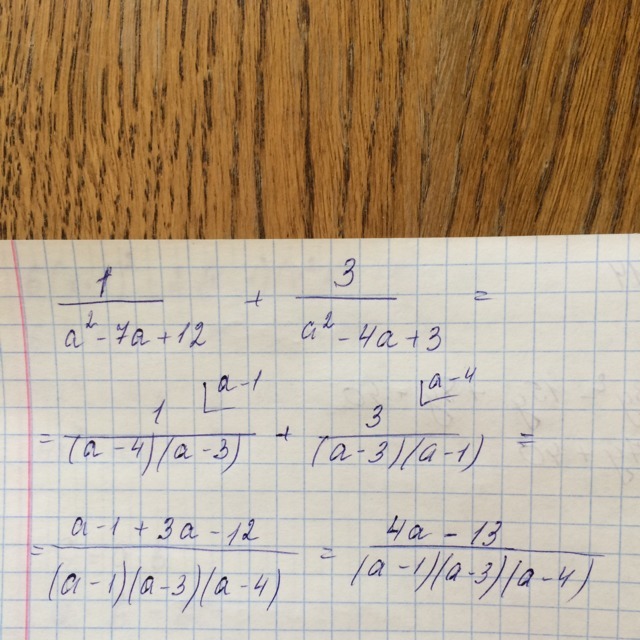 1/(a² - 7a + 12) + 3/(a² - 4a + 3) =
= 1⌊a-1/((a-4)(a-3)) + 3⌊a-4/((a-3)(a-1)) =
= (a-1+3a-12)/((a-1)(a-3)(a-4)) = (4a-13)/((a-1)(a-3)(a-4))